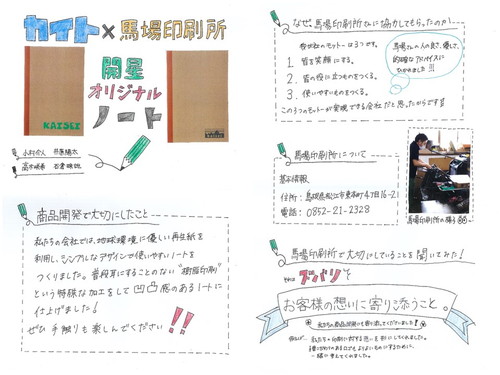 カイト×馬場印刷所
開星
オリジナル
ノート
KAISEI
KAISEI
商品開発で大切にしたこと
私たちの会社では、地球環境に優しい再生紙を
利用し、シンプルなデザインで使いやすいノートを
つくりました。普段耳にすることのない"樹脂印刷"
という特殊な加工をして凹凸感のあるノートに
仕上げました!
ぜひ手触りも楽しんでください!!
なぜ、馬場印刷所さんに協力してもらったのか!
弊会社のモットーは3つです。
1. 皆を笑顔にする。
2. 皆の役に立つものをつくる。
3. 使いやすいものをつくる。
この3つのモットーが実現できる会社だと思ったからです!!
馬場さんの人の良さ、優しさ、
的確なアドバイスに
ひかれました!!!
馬場印刷所について
基本情報
住所:島根県松江市東本町4丁目16-21
電話:0852-21-2328
馬場印刷所の
馬場印刷所で大切にしていることを聞いてみた!
それは ズバリ
お客様の想いに寄り添うこと。
私たちの商品開発にも寄り添ってくださいました!
例えば… 私たちの印刷に対する思いを形にしてくれました。
一緒に考えてくれました。